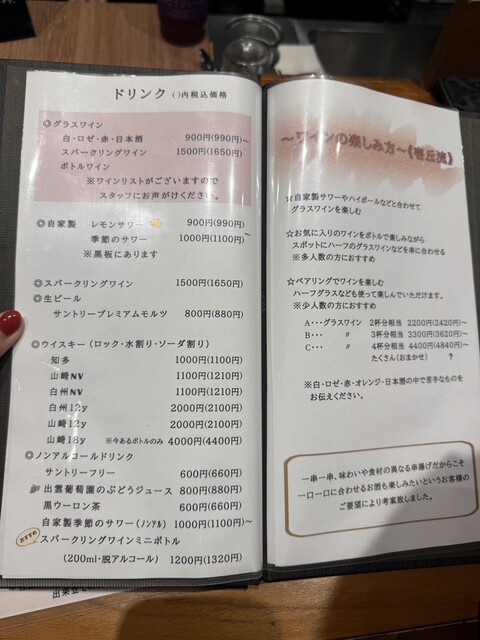 ドリンク ( )内税込価格
◎グラスワイン
白・ロゼ・赤・日本酒 900円(990円)~
スパークリングワイン 1500円(1650円)
ボトルワイン
※ワインリストがございますので
スタッフにお声がけください。
◎自家製 レモンサワー 900円(990円)
季節のサワー 1000円(1100円)~
※黒板にあります
◎スパークリングワイン 1500円(1650円)
◎生ビール
サントリープレミアムモルツ 800円(880円)
◎ウイスキー(ロック・水割り・ソーダ割り)
知多 1000円(1100円)
山崎NV 1100円(1210円)
白州NV 1100円(1210円)
白州12y 2000円(2100円)
山崎12y 2000円(2100円)
山崎18y ※今あるボトルのみ 4000円(4400円)
◎ノンアルコールドリンク
サントリーフリー 600円(660円)
出雲葡萄園のぶどうジュース 800円(880円)
黒ウーロン茶 600円(660円)
自家製季節のサワー(ノンアル) 1000円(1100円)~
おすすめ
スパークリングワインミニボトル
(200ml・脱アルコール) 1200円(1320円)
~ワインの楽しみ方~《壱丘流》
☆自家製サワーやハイボールなどと合わせて
グラスワインを楽しむ
☆お気に入りのワインをボトルで楽しみながら
スポットにハーフのグラスワインなどを串に合わせる
※多人数の方におすすめ
☆ペアリングでワインを楽しむ
ハーフグラスなども使って楽しんでいただけます。
※少人数の方におすすめ
A・・・グラスワイン 2杯分相当 2200円(2420円)~
B・・・ 〃 3杯分相当 3300円(3620円)~
C・・・ 〃 4杯分相当 4400円(4840円)~
たくさん(おまかせ) ?
※白・ロゼ・赤・オレンジ・日本酒の中で苦手なものを
お伝えください。
一串一串、味わいや食材の異なる串揚げだからこそ
一口一口に合わせるお酒も楽しみたいというお客様の
ご要望により考案致しました。